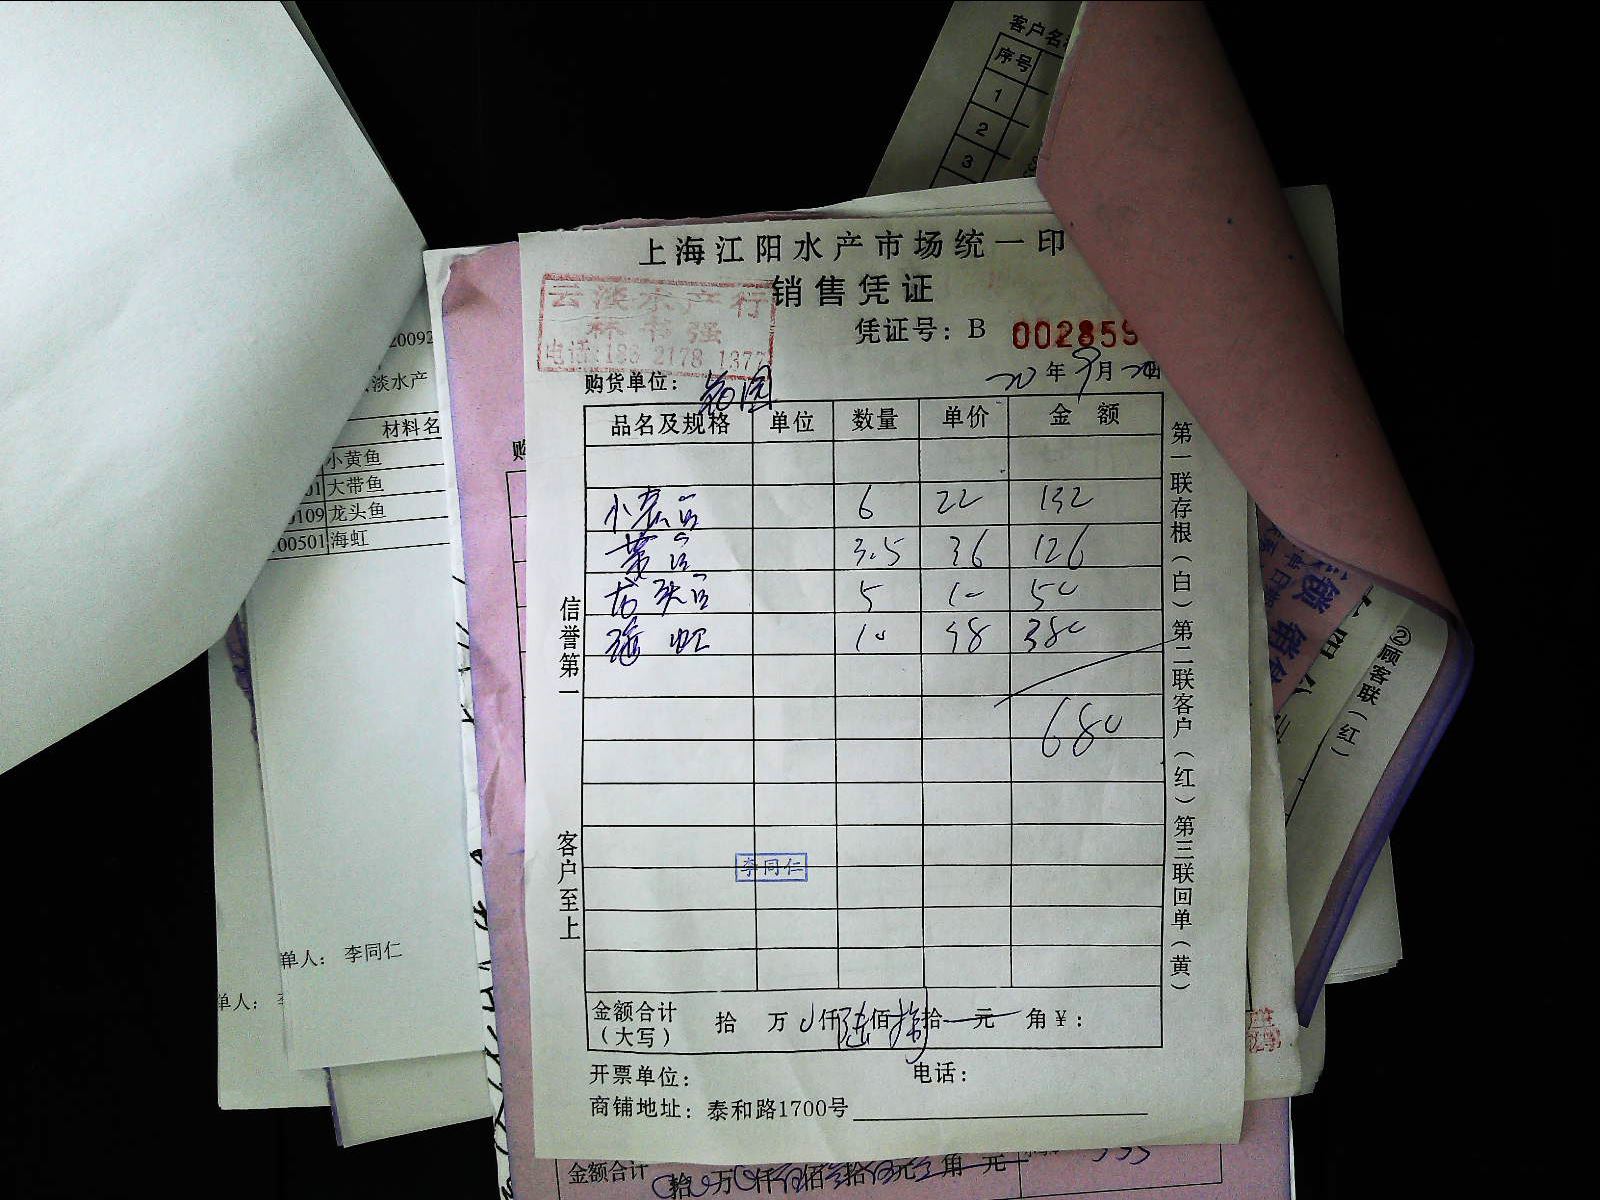 客户名
序号
1
2
3
上海江阳水产市场统一印
销售凭证
云淡水产行
林书强
电话:186 2178 1377
凭证号: B 002859
购货单位: 菊园
20 年 9 月 20 日
品名及规格 单位 数量 单价 金额
小黄鱼 6 22 132
带鱼 3.5 36 126
龙头鱼 5 10 50
海虹 10 38 380
680
李同仁
金额合计(大写) 拾 万 0 仟 陆 佰 捌 拾 元 角 ¥:
开票单位: 电话:
商铺地址: 泰和路1700号
信誉第一
客户至上
第一联存根(白) 第二联客户(红) 第三联回单(黄)
20092
淡水产
材料名
小黄鱼
01 大带鱼
0109 龙头鱼
00501 海虹
单人: 李同仁
单人:
购
②顾客联(红)
金额合计 拾 万 仟 佰 拾 元 角